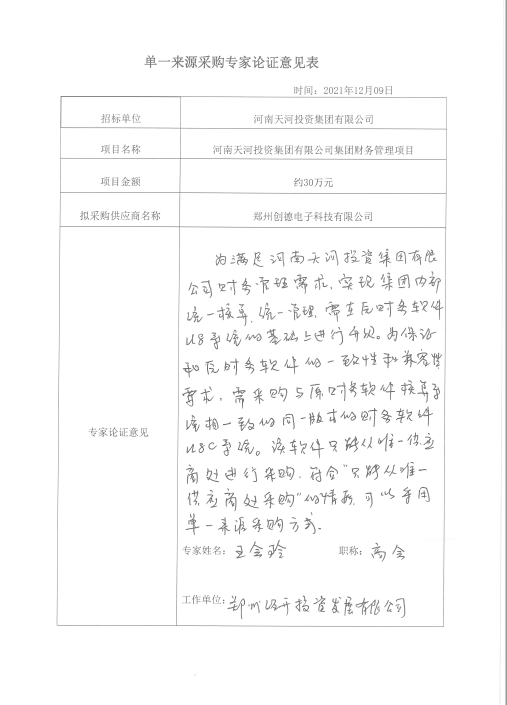 单一来源采购专家论证意见表
时间：2021年12月09日
招标单位 河南天河投资集团有限公司
项目名称 河南天河投资集团有限公司集团财务管理项目
项目金额 约30万元
拟采购供应商名称 郑州创德电子科技有限公司
专家论证意见
为满足河南天河投资集团有限
公司财务管理需求，实现集团内部
统一核算，统一管理，需在反财务软件
U8系统的基础上进行升级。为保证
和反财务软件的一致性和兼容性
需求，需采购与原财务软件核算系
统相一致的同一版本的财务软件
U8C系统。该软件只能从唯一供应
商处进行采购，符合"只能从唯一
供应商处采购"的情形，可以采用
单一来源采购方式。
专家姓名：王会玲 职称：高会
工作单位：郑州经开投资发展有限公司